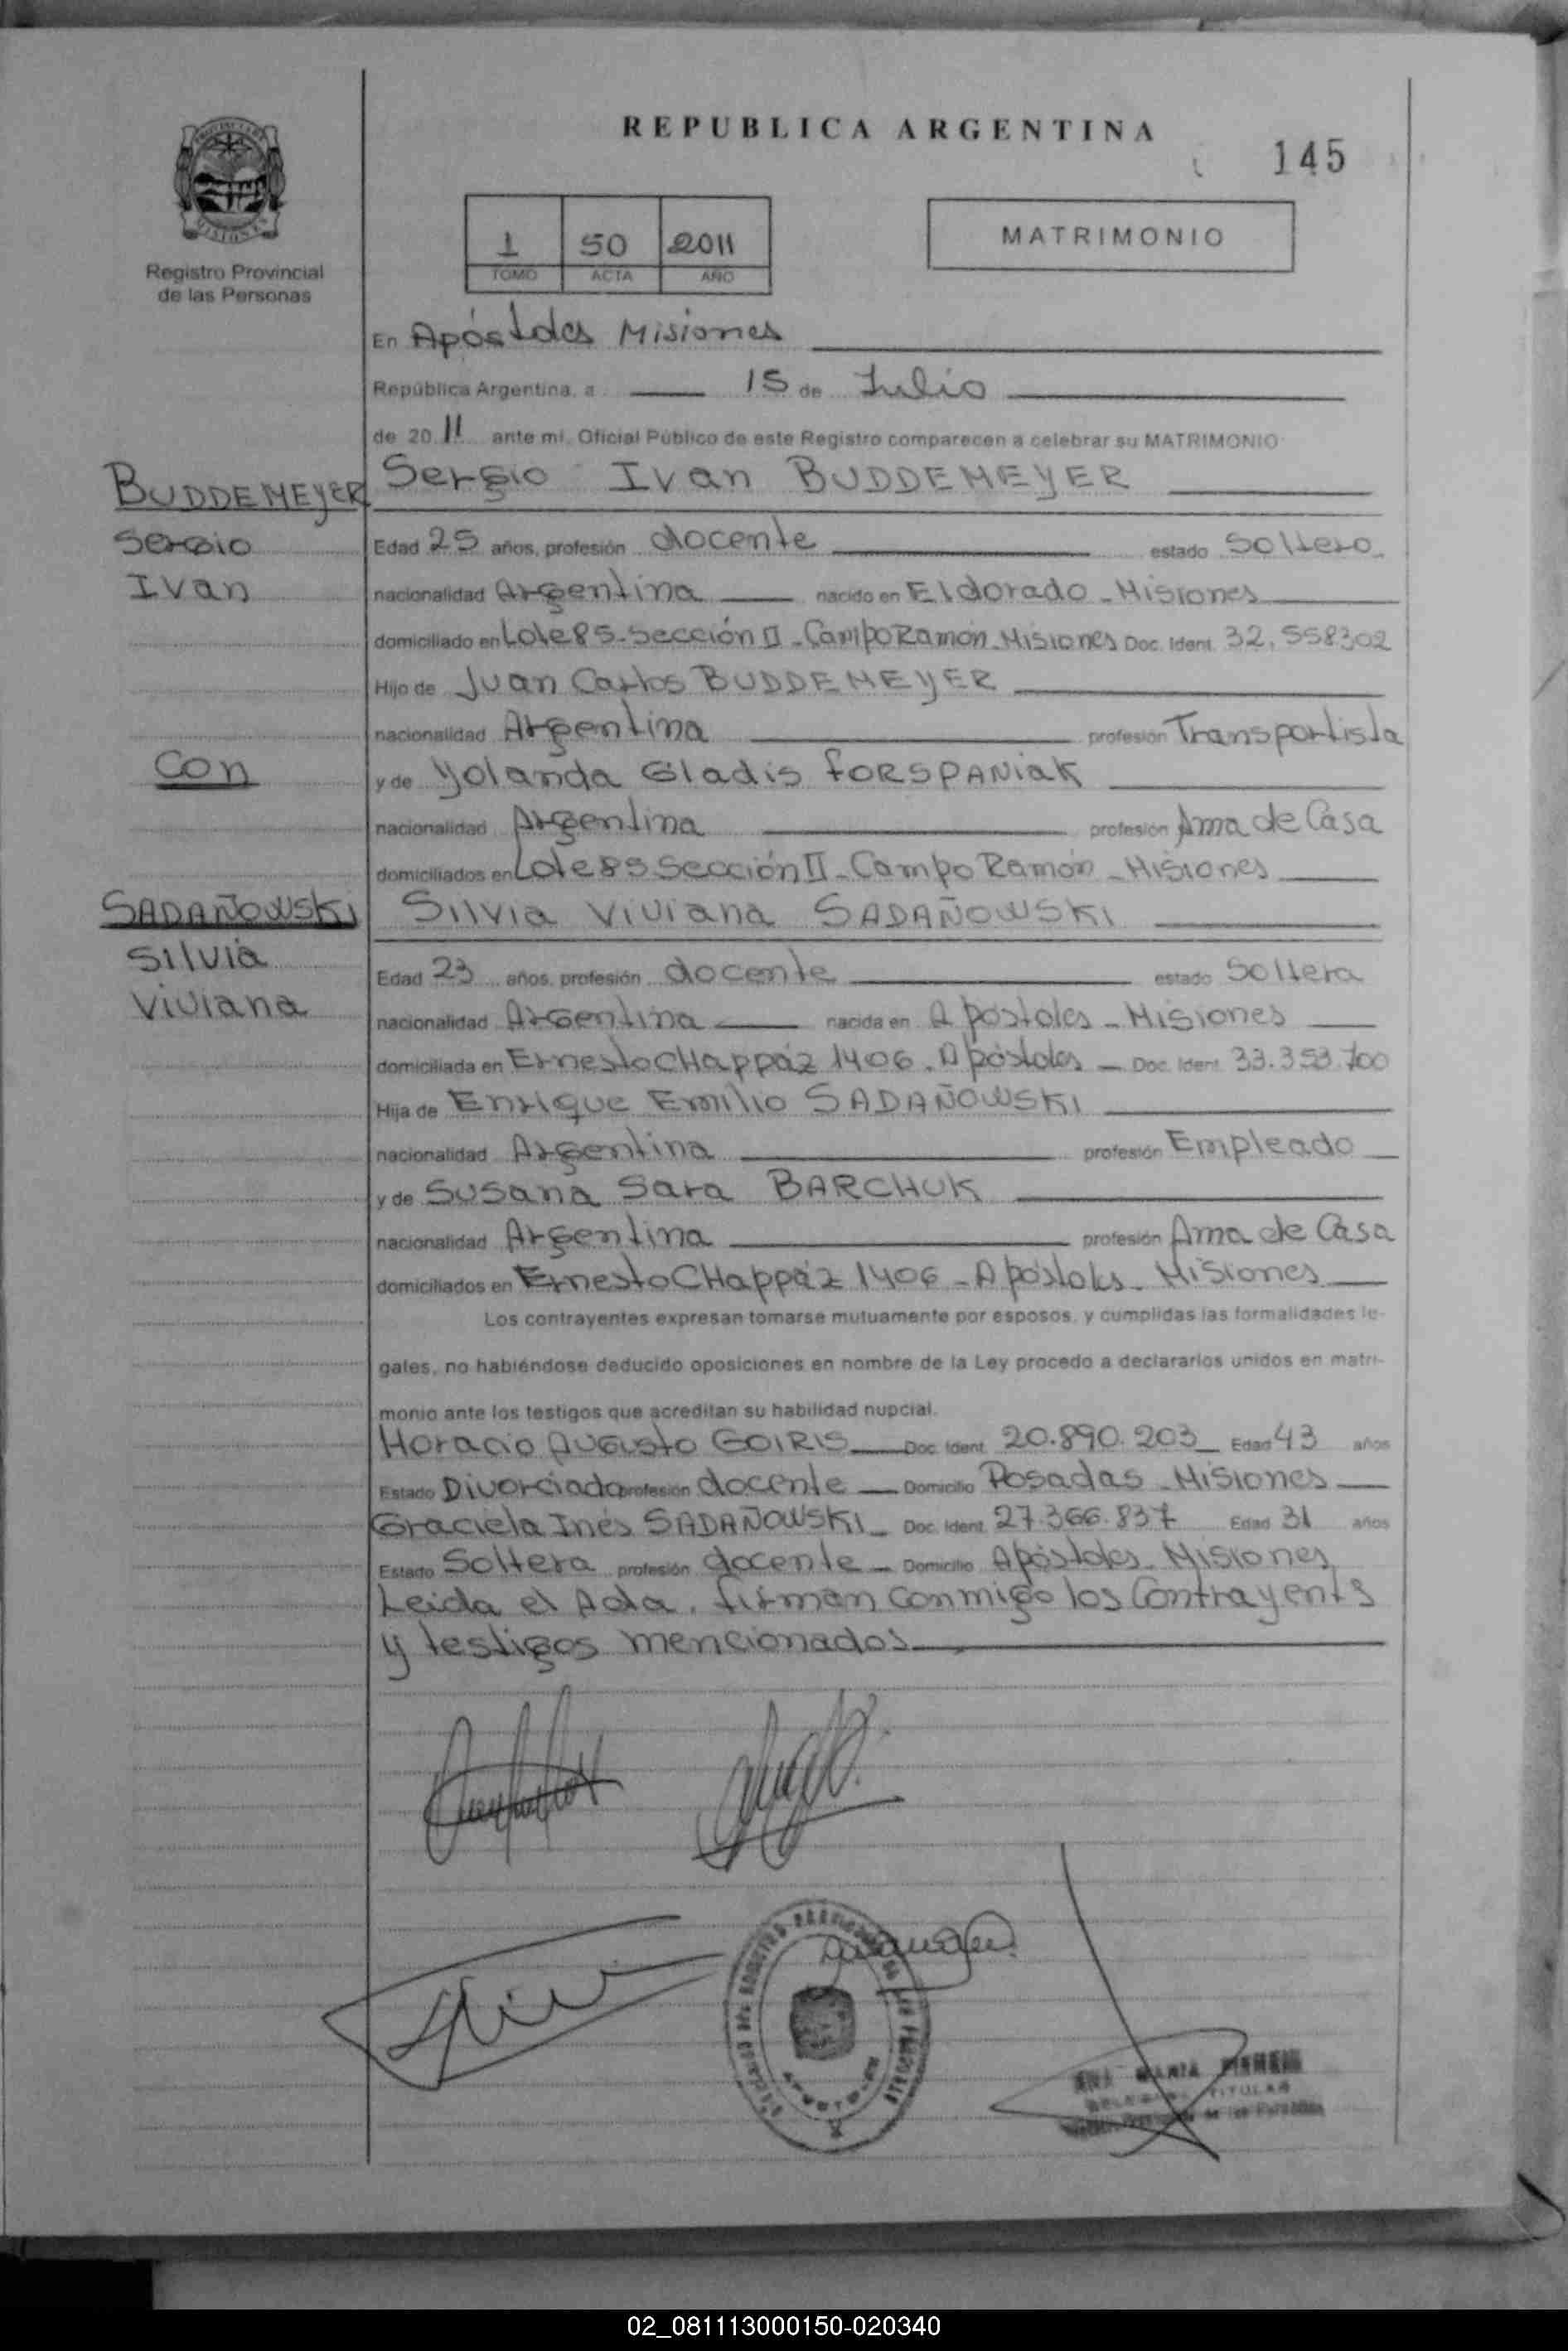 REPUBLICA ARGENTINA
145
1 50 2011
TOMO ACTA AÑO
MATRIMONIO
Registro Provincial
de las Personas
En Apóstoles Misiones
República Argentina, a 15 de Julio
de 20 11 ante mi, Oficial Público de este Registro comparecen a celebrar su MATRIMONIO
BUDDEMEYER
Sergio
Ivan
Con
SADAÑOWSKI
Silvia
Viviana
Sergio Ivan BUDDEMEYER
Edad 25 años, profesión docente estado Soltero
nacionalidad Argentina nacido en Eldorado - Misiones
domiciliado en Lote 85 - Sección II - Campo Ramón - Misiones Doc. Ident. 32.558302
Hijo de Juan Carlos BUDDEMEYER
nacionalidad Argentina profesión Transportista
y de Yolanda Gladis FORSPANIAK
nacionalidad Argentina profesión Ama de Casa
domiciliados en Lote 85 Sección II - Campo Ramón - Misiones
Silvia Viviana SADAÑOWSKI
Edad 23 años, profesión docente estado Soltera
nacionalidad Argentina nacida en Apóstoles - Misiones
domiciliada en Ernesto CHappáz 1406 - Apóstoles - Doc. Ident. 33.353.700
Hija de Enrique Emilio SADAÑOWSKI
nacionalidad Argentina profesión Empleado
y de Susana Sara BARCHUK
nacionalidad Argentina profesión Ama de Casa
domiciliados en Ernesto CHappáz 1406 - Apóstoles - Misiones
Los contrayentes expresan tomarse mutuamente por esposos, y cumplidas las formalidades le-
gales, no habiéndose deducido oposiciones en nombre de la Ley procedo a declararlos unidos en matri-
monio ante los testigos que acreditan su habilidad nupcial.
Horacio Augusto GOIRIS Doc. Ident. 20.890.203 Edad 43 años
Estado Divorciado profesión docente Domicilio Posadas - Misiones
Graciela Inés SADAÑOWSKI Doc. Ident. 27.366.837 Edad 31 años
Estado Soltera profesión docente Domicilio Apóstoles - Misiones
Leida el Acta, firman conmigo los Contrayents
y testigos mencionados
MARIA
TITULAR
02_081113000150-020340